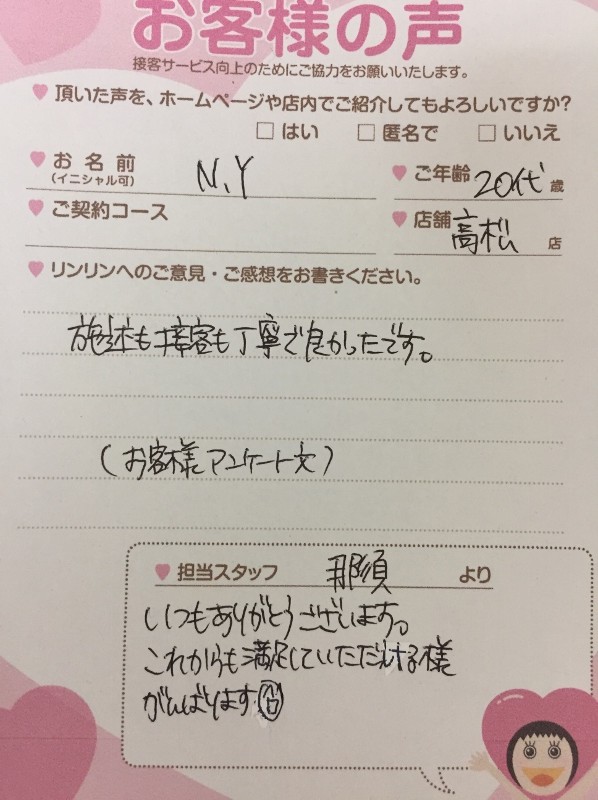 お客様の声
接客サービス向上のためにご協力をお願いいたします。
頂いた声を、ホームページや店内でご紹介してもよろしいですか?
□ はい □ 匿名で □ いいえ
お名前 N.Y ご年齢 20代 歳
(イニシャル可)
ご契約コース 店舗 高松 店
リンリンへのご意見・ご感想をお書きください。
施述も接客も丁寧で良かったです。
(お客様アンケート文)
担当スタッフ 那須 より
いつもありがとうございます。
これからも満足していただける様
がんばります